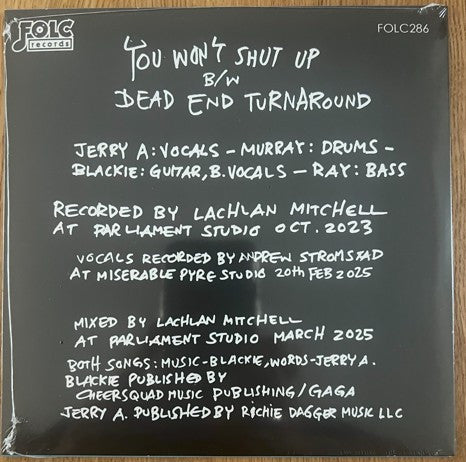 FOLC
records
FOLC286
YOU WON'T SHUT UP
B/W
DEAD END TURNAROUND
JERRY A: VOCALS – MURRAY: DRUMS –
BLACKIE: GUITAR, B. VOCALS – RAY: BASS
RECORDED BY LACHLAN MITCHELL
AT PARLIAMENT STUDIO OCT. 2023
VOCALS RECORDED BY ANDREW STROMSTAD
AT MISERABLE PYRE STUDIO 20TH FEB 2025
MIXED BY LACHLAN MITCHELL
AT PARLIAMENT STUDIO MARCH 2025
BOTH SONGS: MUSIC-BLACKIE, WORDS-JERRY A.
BLACKIE PUBLISHED BY
CHEERSQUAD MUSIC PUBLISHING/GAGA
JERRY A. PUBLISHED BY RICHIE DAGGER MUSIC LLC